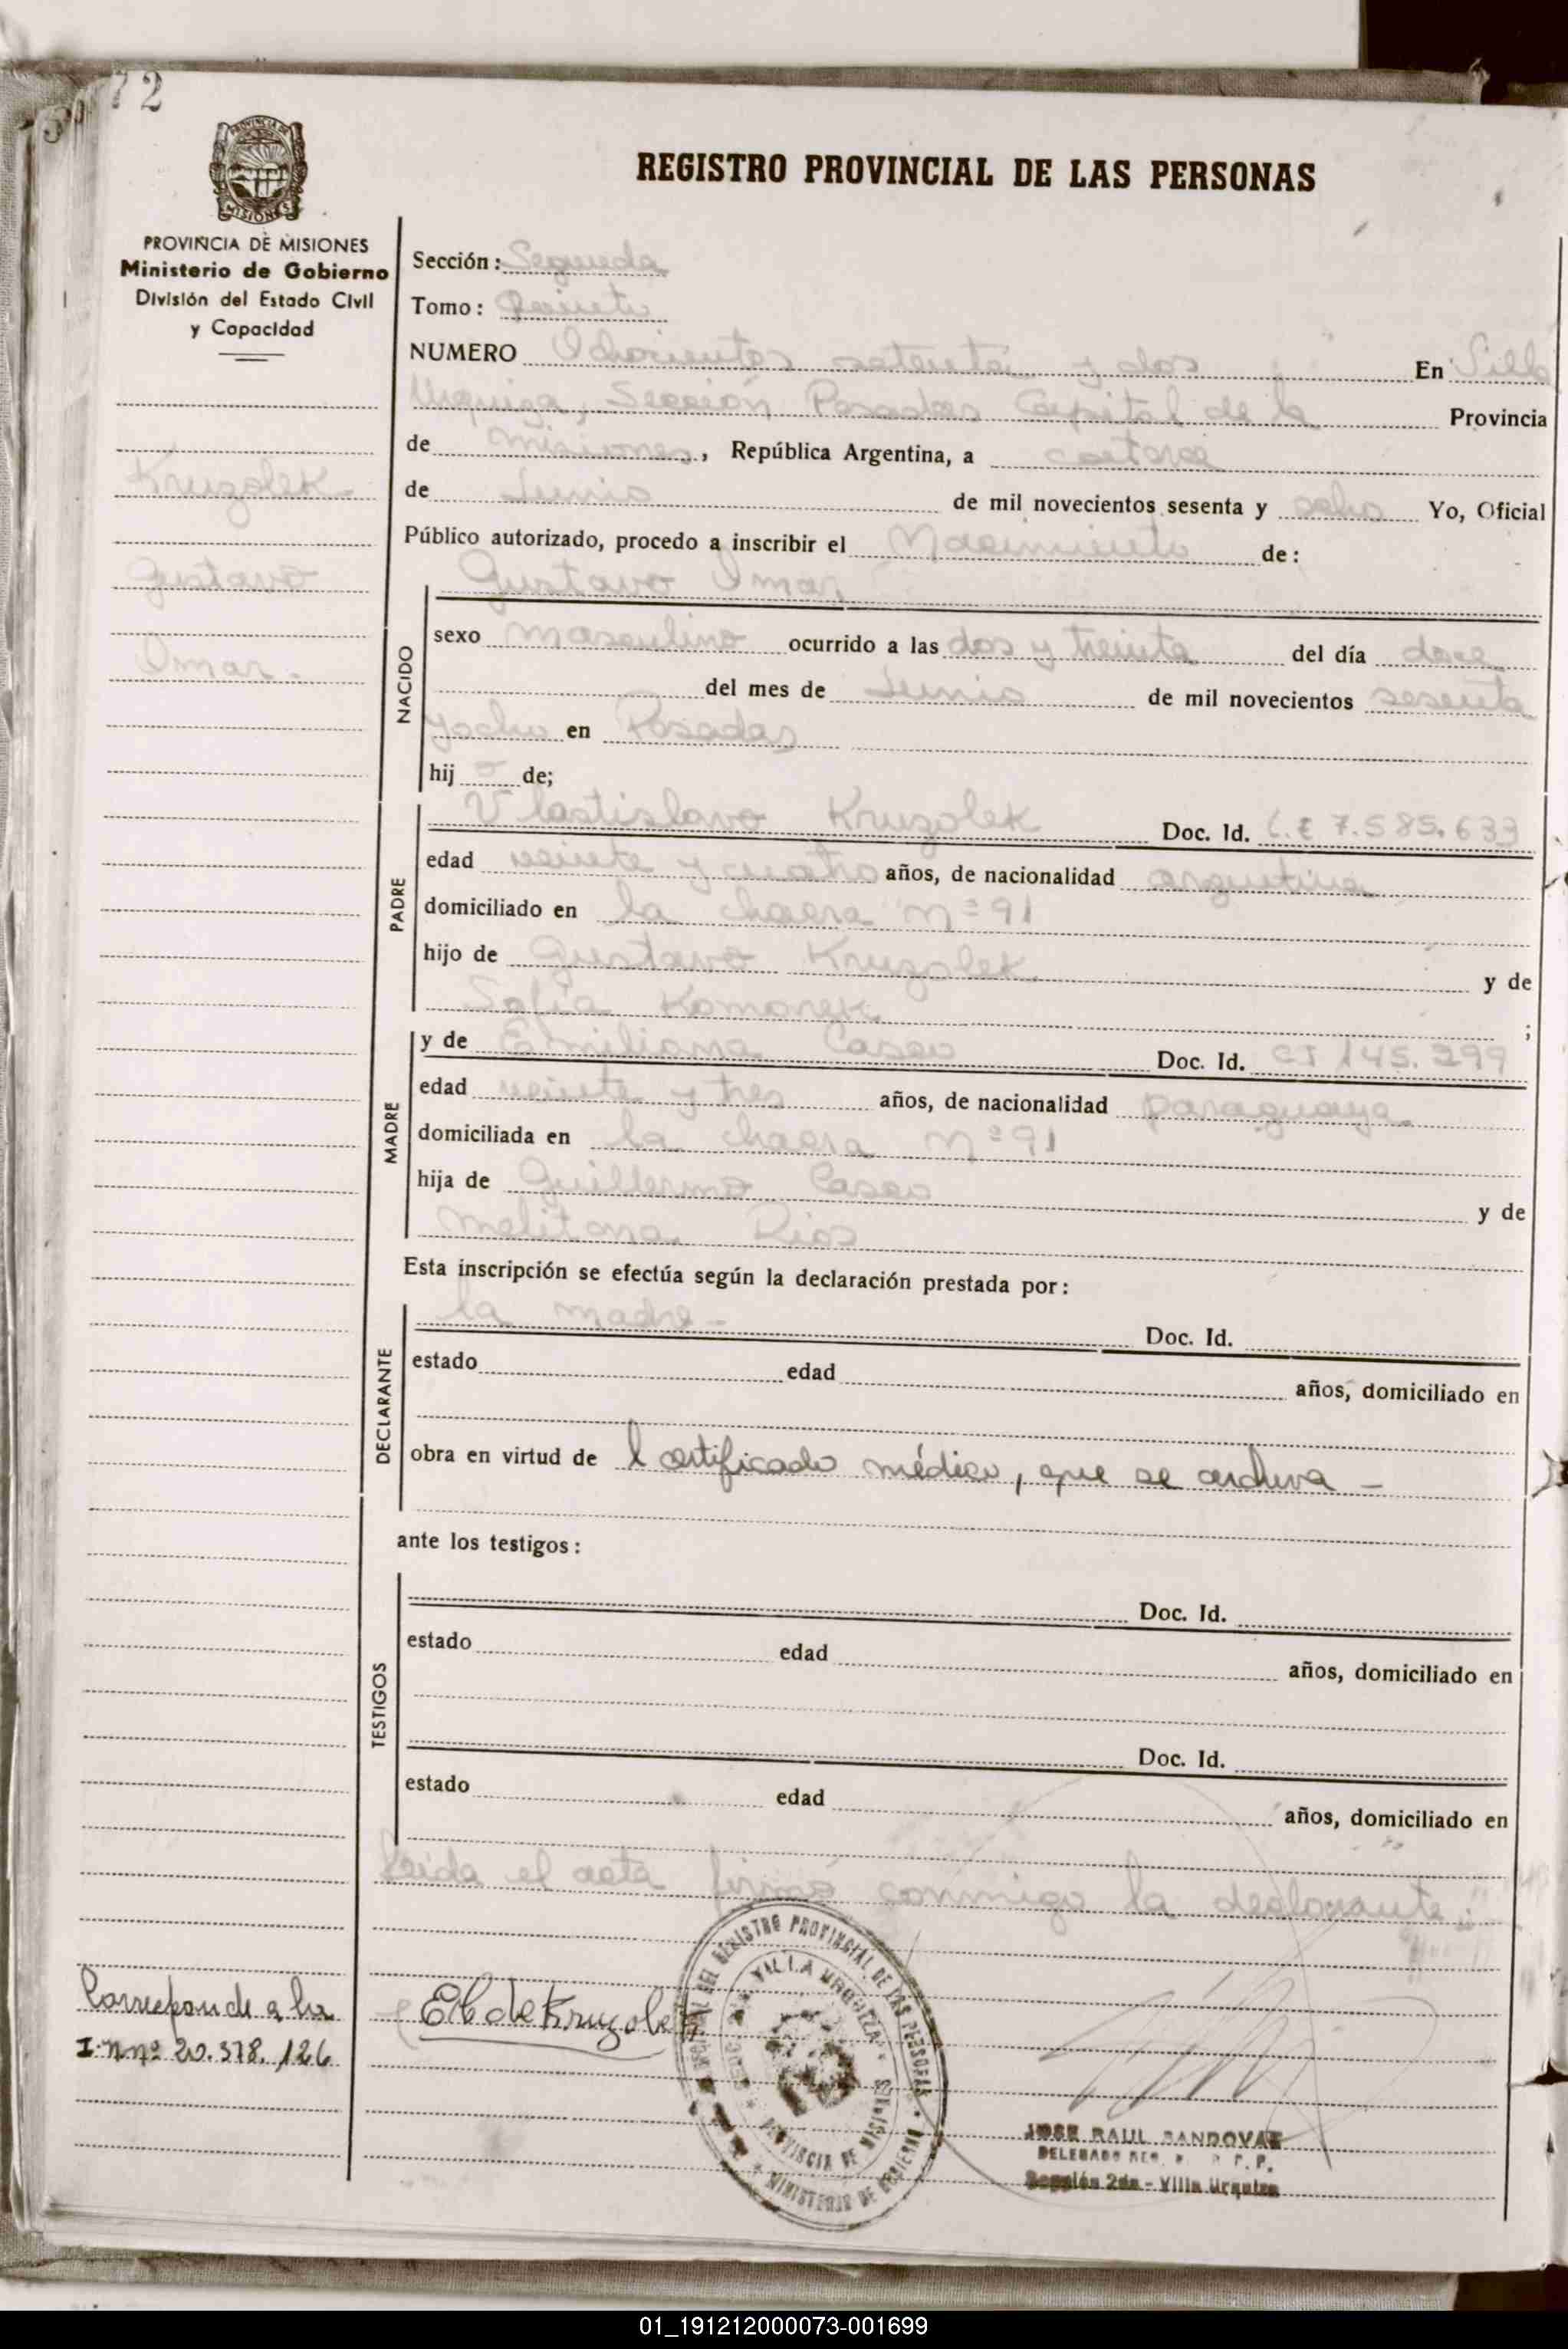 72
PROVINCIA DE MISIONES
Ministerio de Gobierno
División del Estado Civil
y Capacidad
REGISTRO PROVINCIAL DE LAS PERSONAS
Sección: Segunda
Tomo: Quinto
NUMERO Ochocientos setenta y dos En Villa
Urquiza, Sección Posadas Capital de la Provincia
de Misiones, República Argentina, a catorce
de Junio de mil novecientos sesenta y ocho Yo, Oficial
Público autorizado, procedo a inscribir el Nacimiento de:
Kruzolek
Gustavo
Omar.
NACIDO
Gustavo Omar
sexo masculino ocurrido a las dos y treinta del día doce
del mes de Junio de mil novecientos sesenta
y ocho en Posadas
hijo de;
PADRE
Vlastislavo Kruzolek Doc. Id. L.E 7.585.633
edad veinte y cuatro años, de nacionalidad argentina
domiciliado en la chacra Nº 91
hijo de Gustavo Kruzolek y de
Sofia Komorek ;
MADRE
y de Emiliana Casco Doc. Id. CI 145.299
edad veinte y tres años, de nacionalidad paraguaya
domiciliada en la chacra Nº 91
hija de Guillermo Casco y de
Melitona Rios
Esta inscripción se efectúa según la declaración prestada por:
DECLARANTE
la madre - Doc. Id.
estado edad años, domiciliado en
obra en virtud de l certificado médico, que se archiva -
ante los testigos:
TESTIGOS
Doc. Id.
estado edad años, domiciliado en
Doc. Id.
estado edad años, domiciliado en
Leida el acta firmó conmigo la declarante
Corresponde a la
I. nº 20.378.126
E C de Kruzolek
REGISTRO PROVINCIAL DE LAS PERSONAS
VILLA URQUIZA
PROVINCIA DE MISIONES
MINISTERIO DE GOBIERNO
JOSE RAUL SANDOVAL
DELEGADO
Sección 2da - Villa Urquiza
01_191212000073-001699